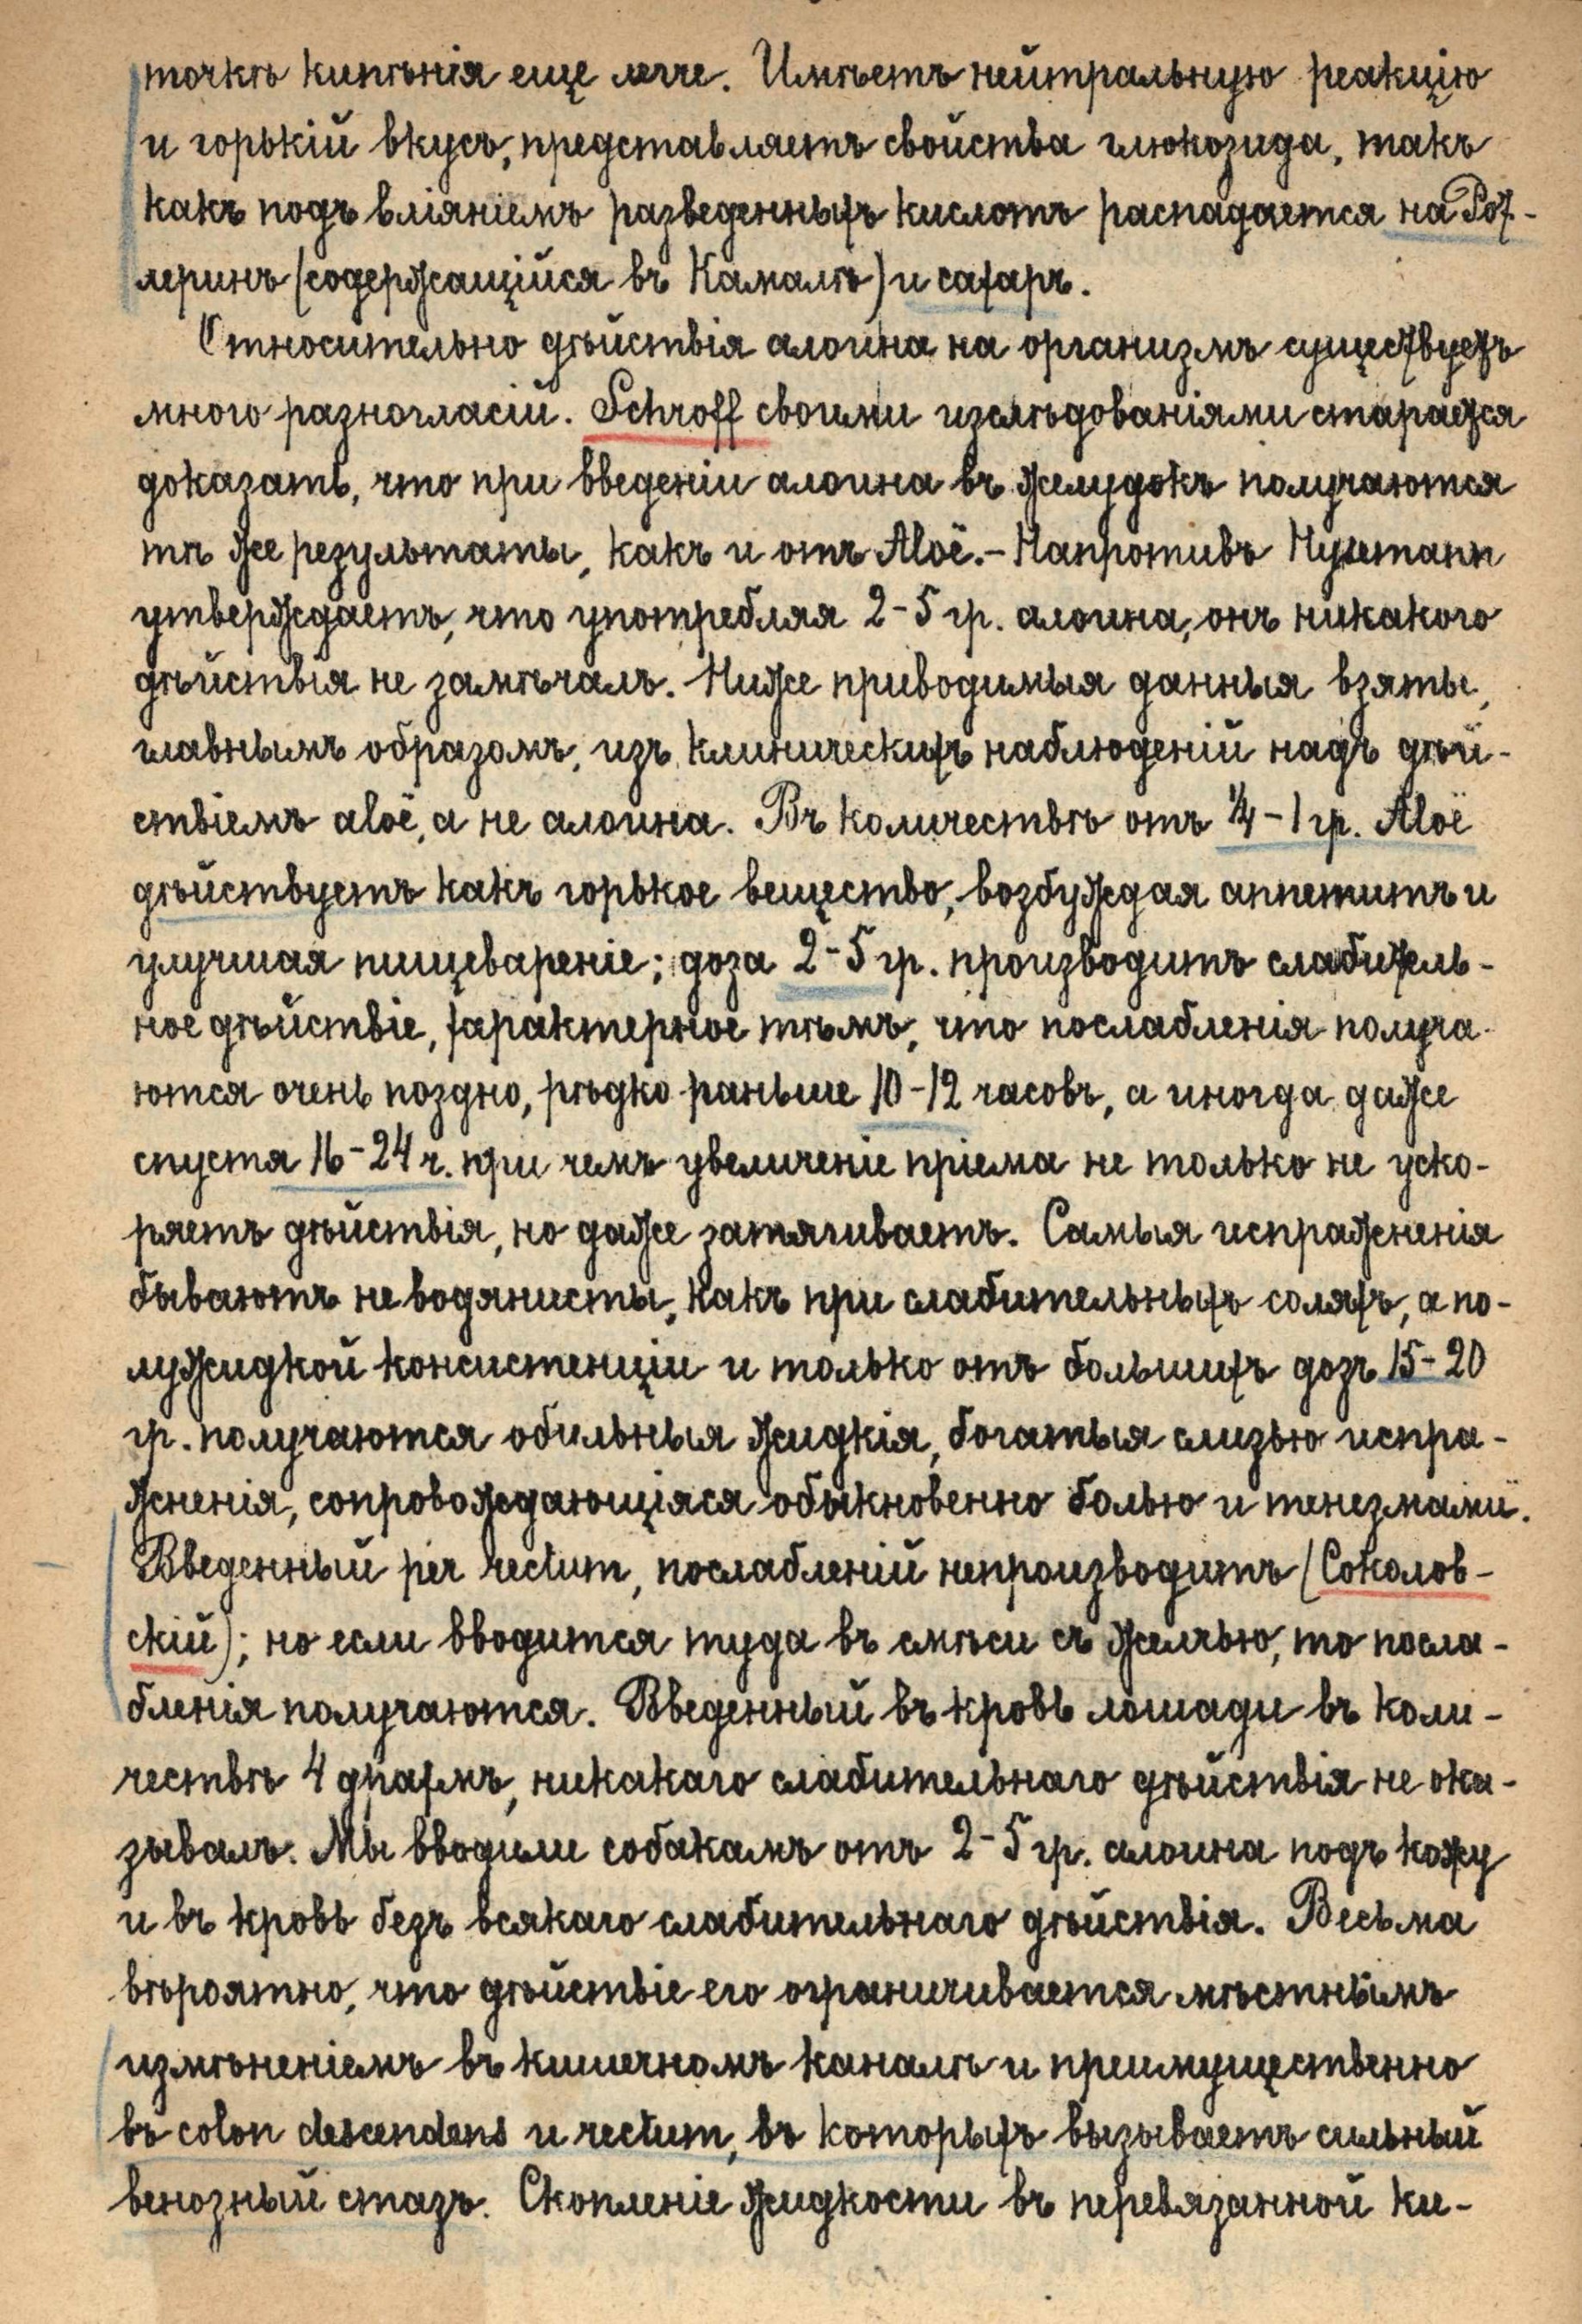 точкѣ кипѣнія еще легче. Имѣетъ нейтральную реакцію
и горькій вкусъ, представляетъ свойства глюкозида, такъ
какъ подъ вліяніемъ разведенныхъ кислотъ распадается на Рот-
леринъ (содержащійся въ Камалѣ) и сахаръ.
Относительно дѣйствія алоина на организмъ существуетъ
много разногласій. Schroff своими изслѣдованіями старается
доказать, что при введеніи алоина въ желудокъ получаются
тѣ же результаты, какъ и отъ Aloë. - Напротивъ
утверждаетъ, что употребляя 2-5 гр. алоина, онъ никакого
дѣйствія не замѣчалъ. Ниже приводимыя данныя взяты,
главнымъ образомъ, изъ клиническихъ наблюденій надъ дѣй-
ствіемъ aloë, а не алоина. Въ количествѣ отъ 1/4-1 гр. Aloë
дѣйствуетъ какъ горькое вещество, возбуждая аппетитъ и
улучшая пищевареніе; доза 2-5 гр. производитъ слабитель-
ное дѣйствіе, характерное тѣмъ, что послабленія получа-
ются очень поздно, рѣдко раньше 10-12 часовъ, а иногда даже
спустя 16-24 ч. при чемъ увеличеніе пріема не только не уско-
ряетъ дѣйствія, но даже затягиваетъ. Самыя испражненія
бываютъ не водянисты, какъ при слабительныхъ соляхъ, а по-
лужидкой консистенціи и только отъ большихъ дозъ 15-20
гр. получаются обильныя жидкія, богатыя слизью испра-
жненія, сопровождающіяся обыкновенно болью и тенезмами.
Введенный per rectum, послабленій непроизводитъ (Соколов-
скій); но если вводится туда въ смѣси съ желчью, то посла-
бленія получаются. Введенный въ кровь лошади въ коли-
чествѣ 4 драхмъ, никакаго слабительнаго дѣйствія не ока-
зывалъ. Мы вводили собакамъ отъ 2-5 гр. алоина подъ кожу
и въ кровь безъ всякаго слабительнаго дѣйствія. Весьма
вѣроятно, что дѣйствіе его ограничивается мѣстнымъ
измѣненіемъ въ кишечномъ каналѣ и преимущественно
въ colon descendens и rectum, въ которыхъ вызываетъ сильный
венозный стазъ. Скопленіе жидкости въ перевязанной ки-